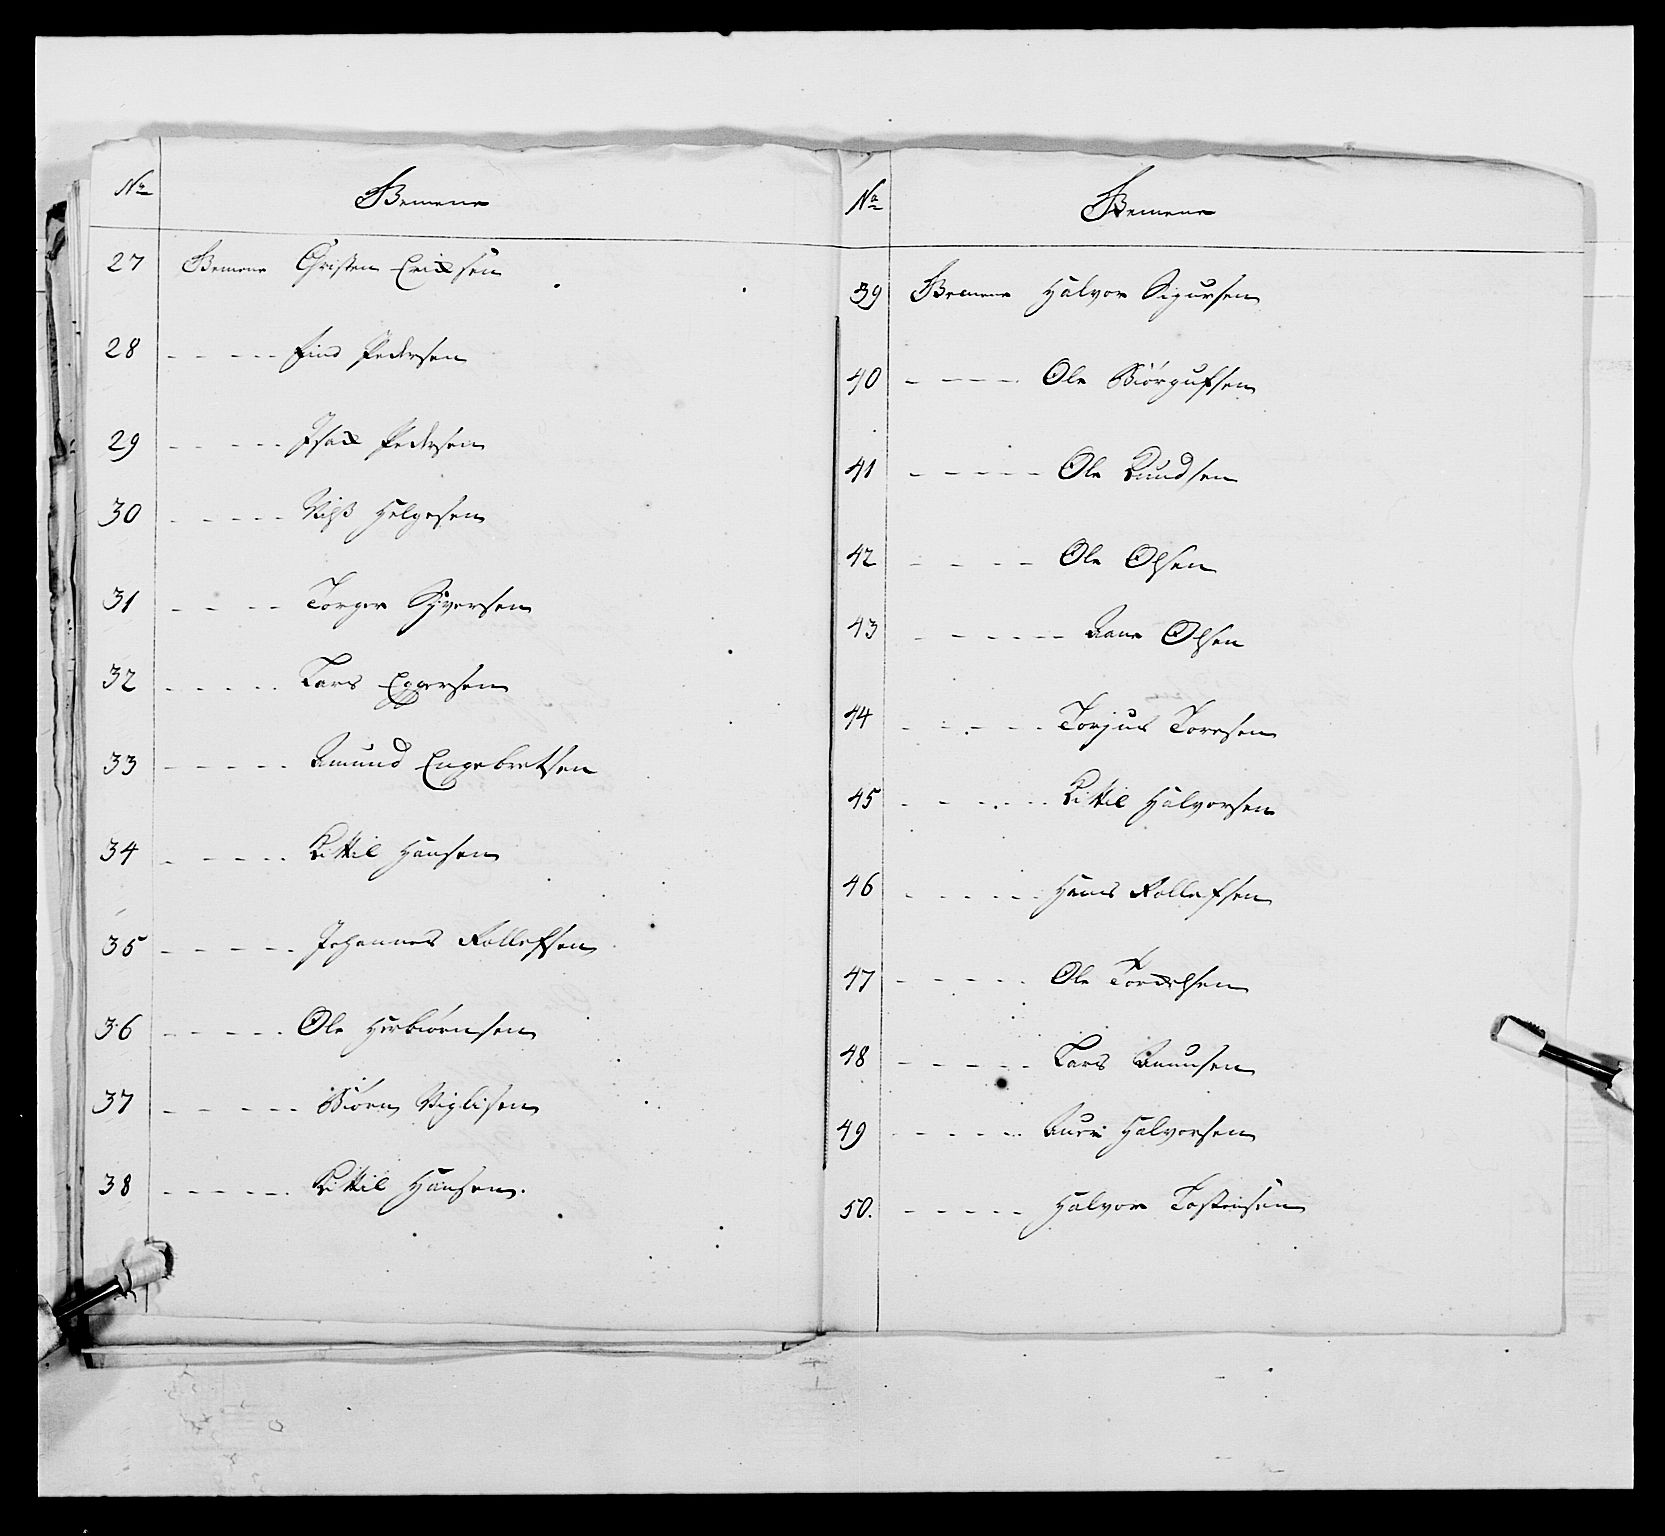 No
Gemene
27 Gemene Christen Erichsen
28 - - - - Find Pedersen
29 - - - - Isach Pedersen
30 - - - - Nilß Helgesen
31 - - - - Torger Syversen
32 - - - - Lars Eggersen
33 - - - - Amund Engebretsen
34 - - - - Kittil Hansen
35 - - - - Johannes Rollefsen
36 - - - - Ole Herbiørnsen
37 - - - - Biørn Viglisen
38 - - - - Kittil Hansen.
No
Gemene
39 Gemene Halvor Sigursen
40 - - - - Ole Biørgufsen
41 - - - - Ole Knudsen
42 - - - - Ole Olsen
43 - - - - Aane Olsen
44 - - - - Torjus Toresen
45 - - - - Kittil Halvorsen
46 - - - - Hans Rollefsen
47 - - - - Ole
48 - - - - Lars Amunsen
49 - - - - Auen Halvorsen
50. - - - - Halvor Tostensen